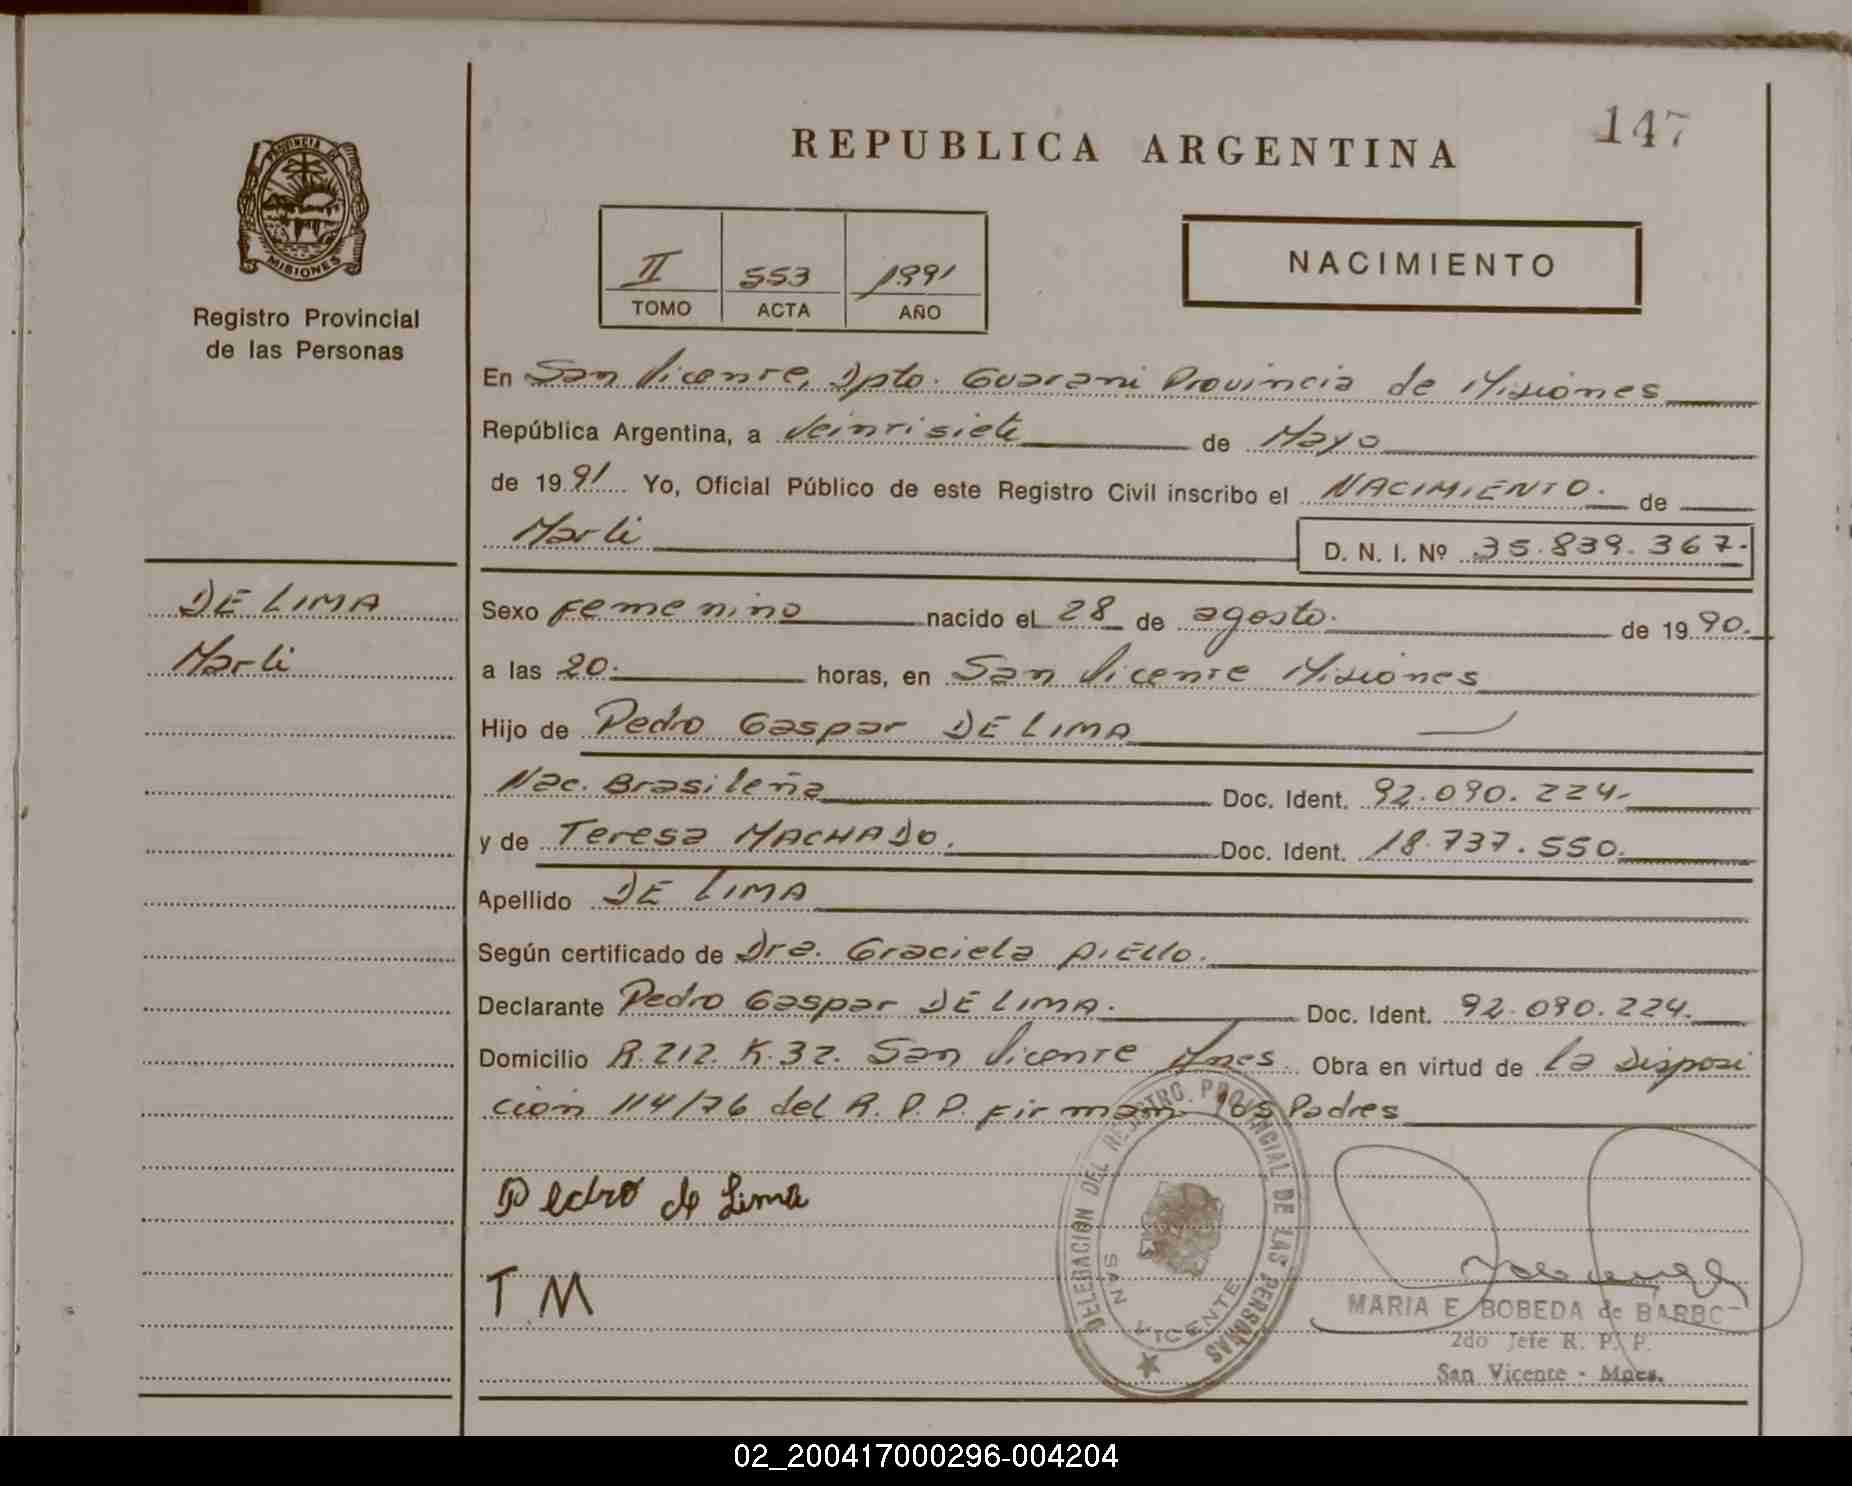 147
REPUBLICA ARGENTINA
PROVINCIA DE
MISIONES
Registro Provincial
de las Personas
II 553 1991
TOMO ACTA AÑO
NACIMIENTO
En San Vicente, Dpto. Guarani Provincia de Misiones
República Argentina, a Veintisiete de Mayo
de 1991 Yo, Oficial Público de este Registro Civil inscribo el NACIMIENTO. de
Marli D. N. I. Nº 35.839.367.-
DE LIMA
Marli
Sexo Femenino nacido el 28 de agosto. de 1990.
a las 20. horas, en San Vicente Misiones
Hijo de Pedro Gaspar DE LIMA
Nac. Brasileña Doc. Ident. 92.090.224.
y de Teresa MACHADO. Doc. Ident. 18.737.550.
Apellido DE LIMA
Según certificado de Dra. Graciela
Declarante Pedro Gaspar DE LIMA. Doc. Ident. 92.090.224.
Domicilio R.212. K.32. San Vicente Mnes. Obra en virtud de la Disposi
ción 114/76 del R.P.P. Firman los Padres
Pedro de Lima
T M
DELEGACION DEL REGISTRO PROVINCIAL DE LAS PERSONAS
SAN VICENTE
MARIA E. BOBEDA de BARBO
2do Jefe R. P. P.
San Vicente - Mnes.
02_200417000296-004204